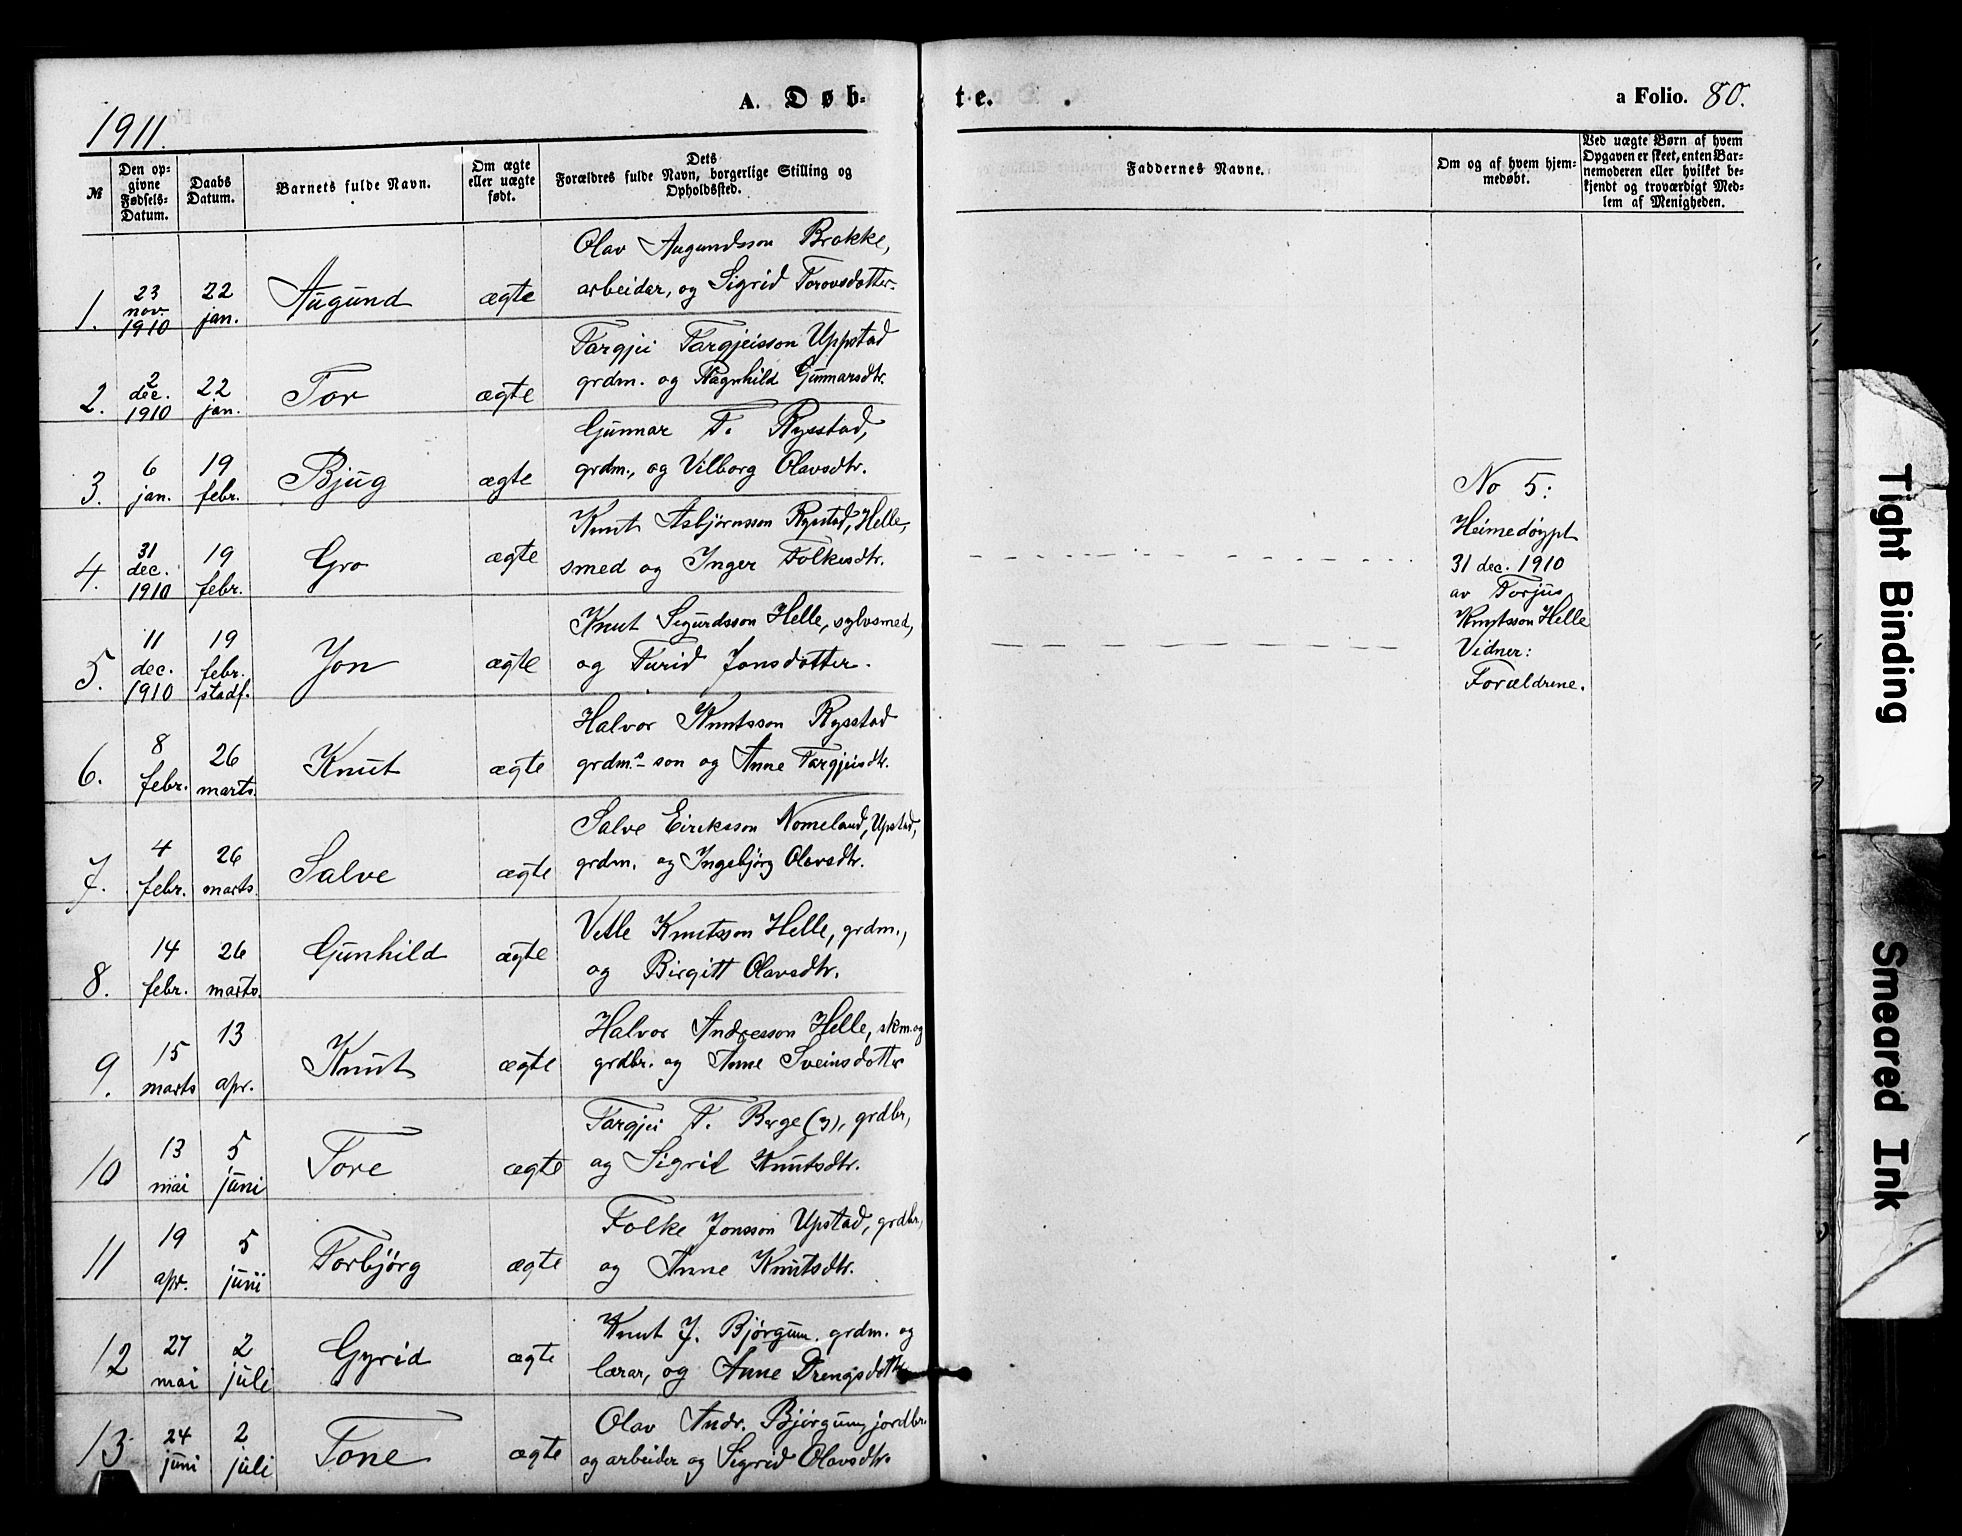 1911.
A. Døb-
te.
a Folio. 80.
№
Den op-
givne
Fødsels-
Datum.
Daabs
Datum.
Barnets fulde Navn.
Om ægte
eller uægte
født.
Dets
Forældres fulde Navn, borgerlige Stilling og
Opholdssted.
Faddernes Navne.
Om og af hvem hjem-
medøbt.
Ved uægte Børn af hvem
Opgaven er skeet, enten Bar-
nemoderen eller hvilket be-
kjendt og troværdigt Med-
lem af Menigheden.
1. 23 nov. 1910 22 jan. Augund ægte
Olav Augundsson Brokke,
arbeider, og Sigrid Torovsdotter.
2. 2 dec. 1910 22 jan. Tor ægte
Targjei Targjeisson Uppstad
grdm. og Ragnhild Gunnarsdtr.
3. 6 jan. 19 febr. Bjug ægte
Gunnar T. Rysstad,
grdm., og Vilborg Olavsdtr.
4. 31 dec. 1910 19 febr. Gro ægte
Knut Asbjørnsson Rysstad, Helle,
smed og Inger Folkesdtr.
5. 11 dec. 1910 19 febr. stadf. Jon ægte
Knut Sigurdsson Helle, sylvsmed,
og Turid Jonsdotter.
No 5:
Heimedøypt
31 dec. 1910
av Torjus
Knutsson Helle
Vidner:
Forældrene.
6. 8 febr. 26 marts. Knut ægte
Halvor Knutsson Rysstad
grdm.s son og Anne Targjeisdtr.
7. 4 febr. 26 marts. Salve ægte
Salve Eiriksson Nomeland, Upstad,
grdm. og Ingebjørg Olavsdtr.
8. 14 febr. 26 marts. Gunhild ægte
Vetle Knutsson Helle, grdm.,
og Birgitt Olavsdtr.
9. 15 marts 13 apr. Knut ægte
Halvor Andresson Helle, skm. og
grdbr. og Anne Sveinsdotter
10 13 mai 5 juni Tore ægte
Targjei T. Berge (3), grdbr,
og Sigrid Knutsdtr.
11 19 apr. 5 juni Torbjørg ægte
Folke Jonsson Upstad, grdbr,
og Anne Knutsdtr.
12 27 mai 2 juli Gyrid ægte
Knut J. Bjørgum. grdm. og
lærar, og Anne Drengsdotter
13 24 juni 2 juli Tone ægte
Olav Andr. Bjørgum, jordbr.
og arbeider og Sigrid Olavsdtr.
Tight Binding
Smeared Ink